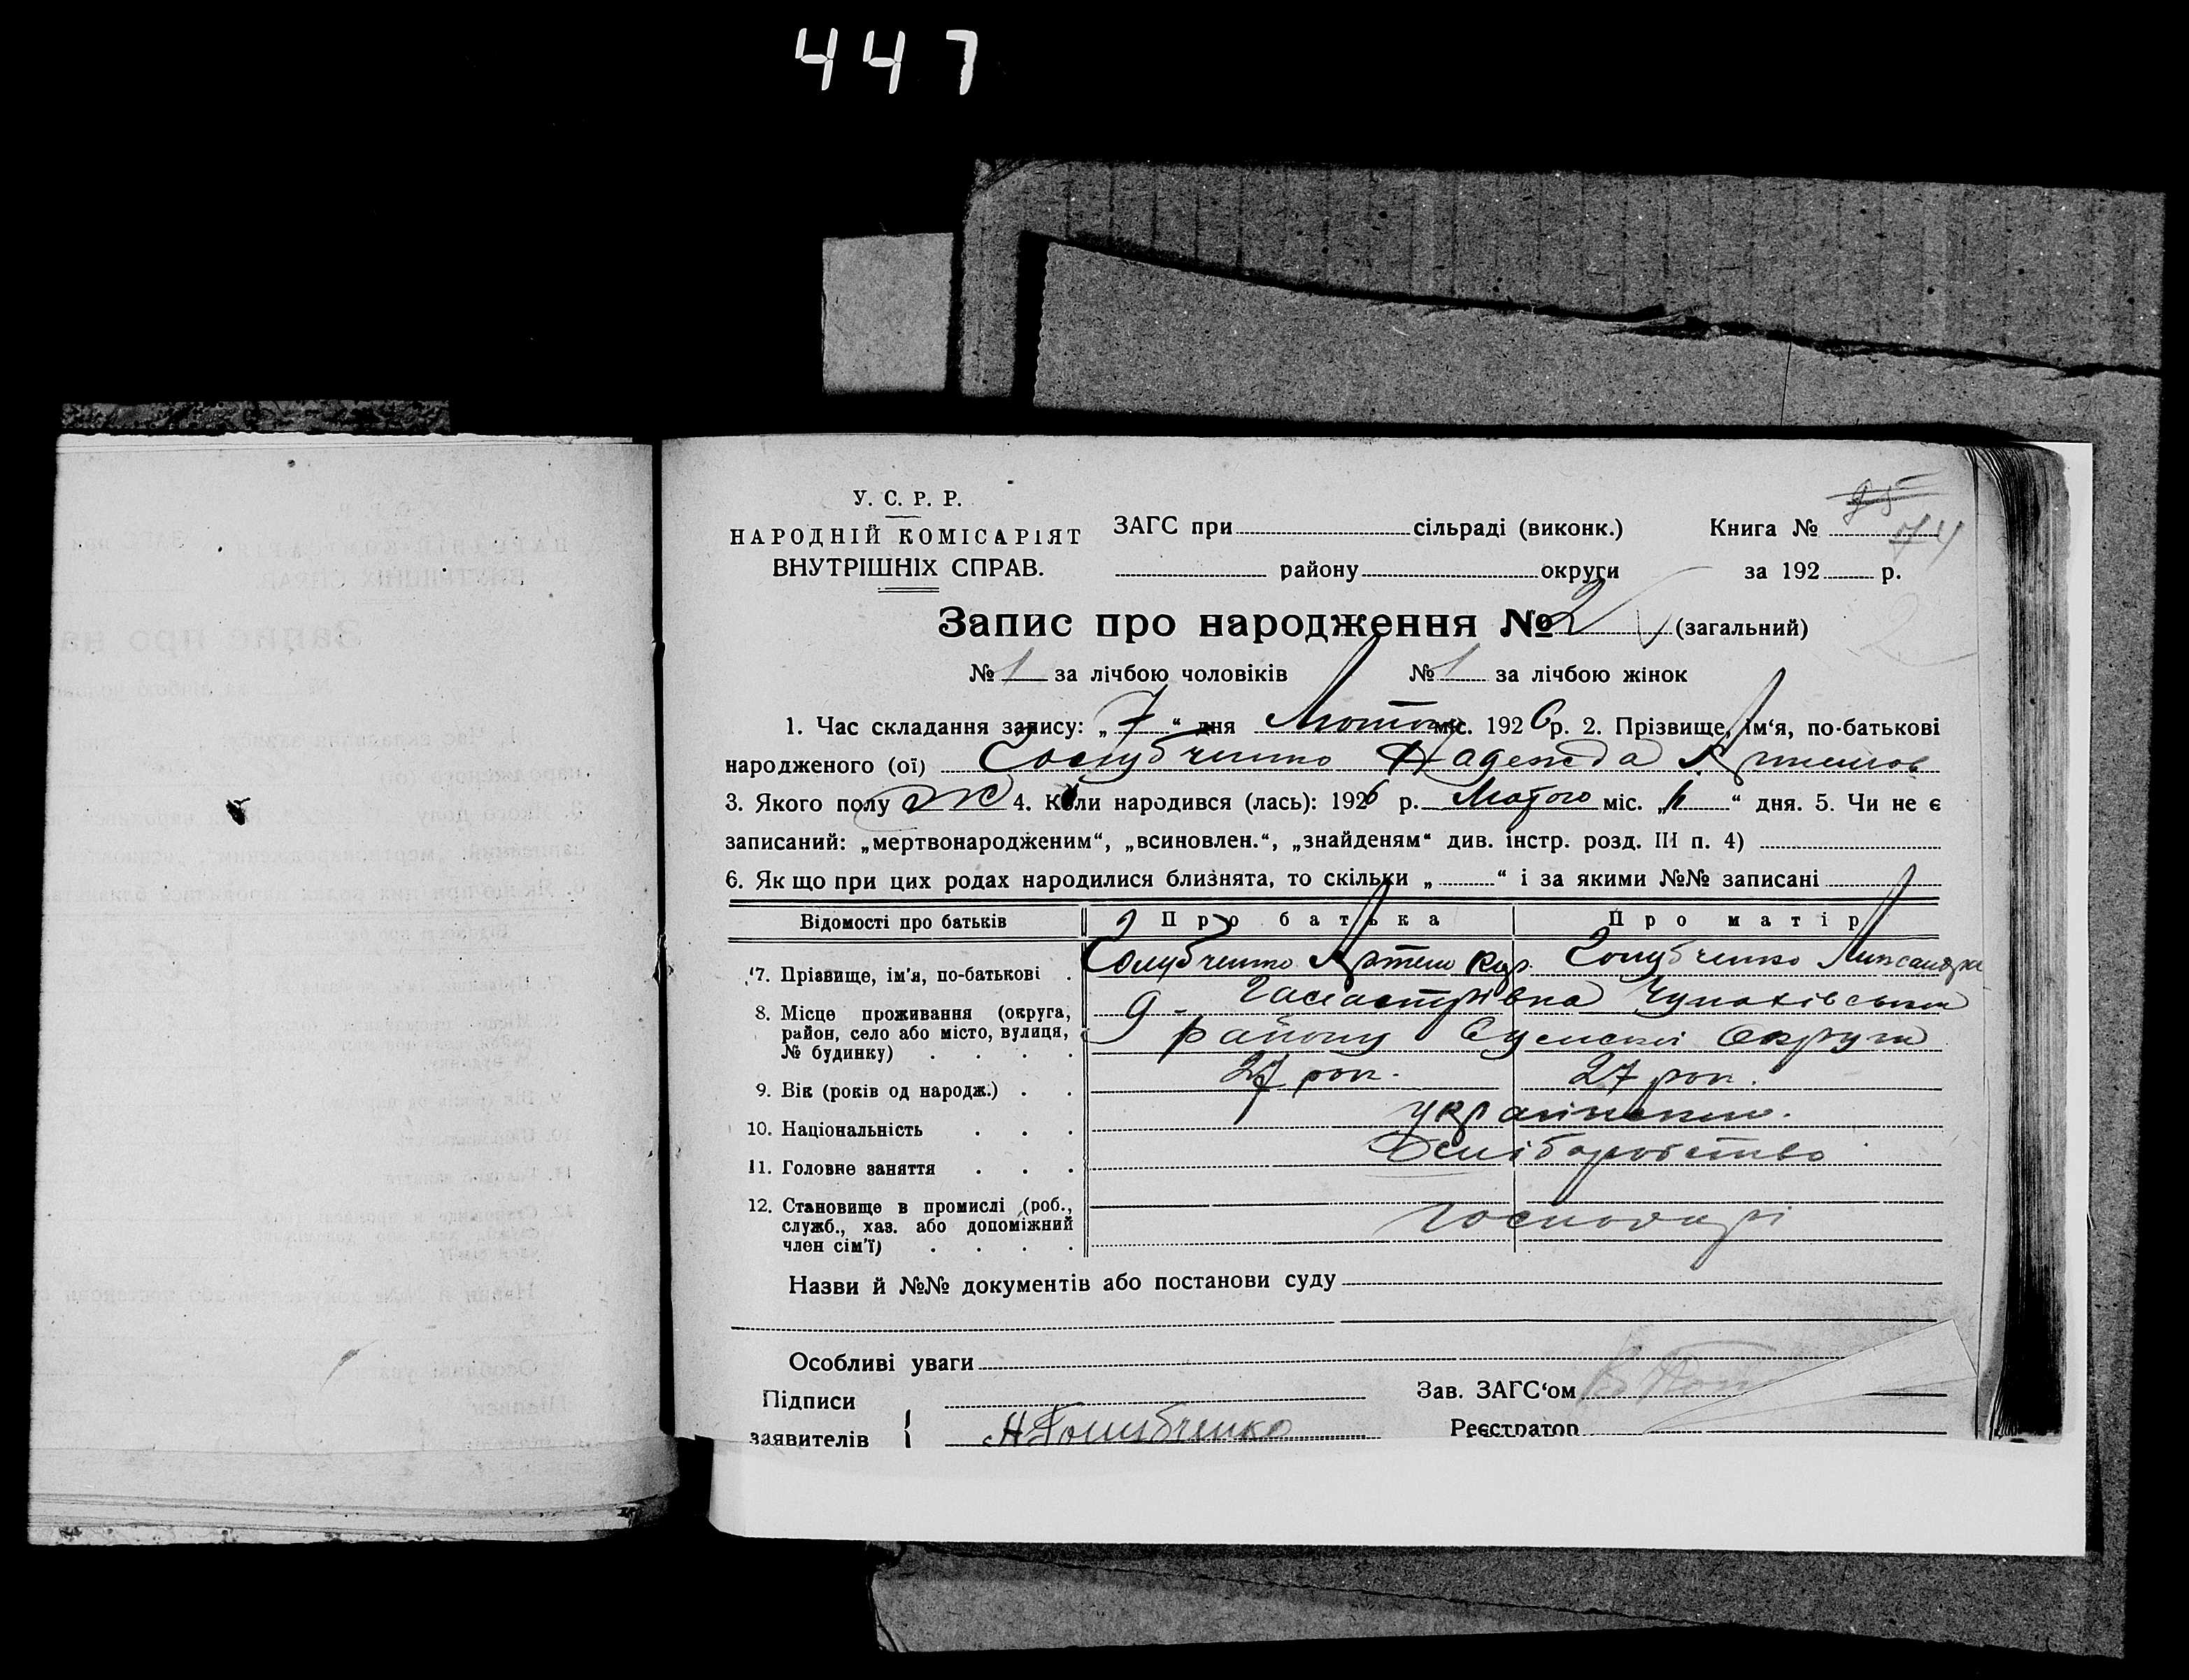 447
У. С. Р. Р.
НАРОДНІЙ КОМІСАРІЯТ
ВНУТРІШНІХ СПРАВ.
ЗАГС при сільраді (виконк.)
району округи
Книга № 95 74
за 192 р.
Запис про народження № 2 (загальний)
№ 1 за лічбою чоловіків № 1 за лічбою жінок
1. Час складання запису: „7“ дня Лютого міс. 1926 р. 2. Прізвище, ім‘я, по-батькові
народженого (ої) Голубченко Надежда
3. Якого полу Ж 4. Коли народився (лась): 1926 р. Лютого міс. „6“ дня. 5. Чи не є
записаний: „мертвонародженим“, „всиновлен.“, „знайденям“ див. інстр. розд. III п. 4)
6. Як що при цих родах народилися близнята, то скільки „ “ і за якими №№ записані
Відомості про батьків Про батька Про матір
7. Прізвище, ім‘я, по-батькові . Голубченко Артем Кар. Голубченко Лександра
8. Місце проживання (округа, район, село або місто, вулиця, № будинку) . . . . Чупахівського
району Сумскої Округи
9. Вік (років од народж.) . . 27 рок. 27 рок.
10. Національність . . . українськ.
11. Головне заняття . . . Хліборобство
12. Становище в промислі (роб., служб., хаз. або допоміжний член сім‘ї) . . . . Господарі
Назви й №№ документів або постанови суду
Особливі уваги
Підписи
заявителів { Голубченко
Зав. ЗАГС‘ом
Реєстратор